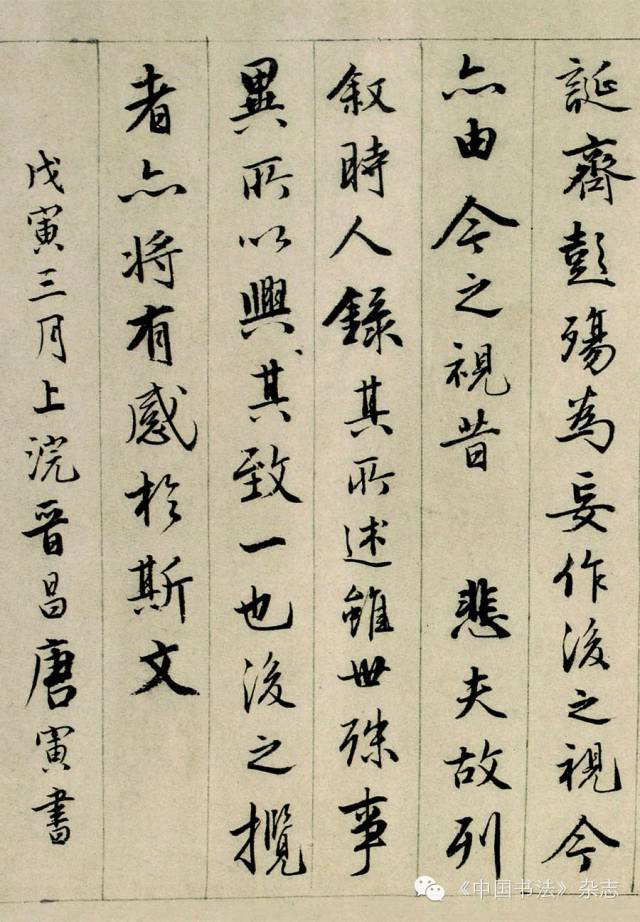 誕齊彭殤為妄作後之視今
亦由今之視昔 悲夫故列
叙時人錄其所述雖世殊事
異所以興其致一也後之攬
者亦将有感於斯文
戊寅三月上浣晋昌唐寅書
《中国书法》杂志